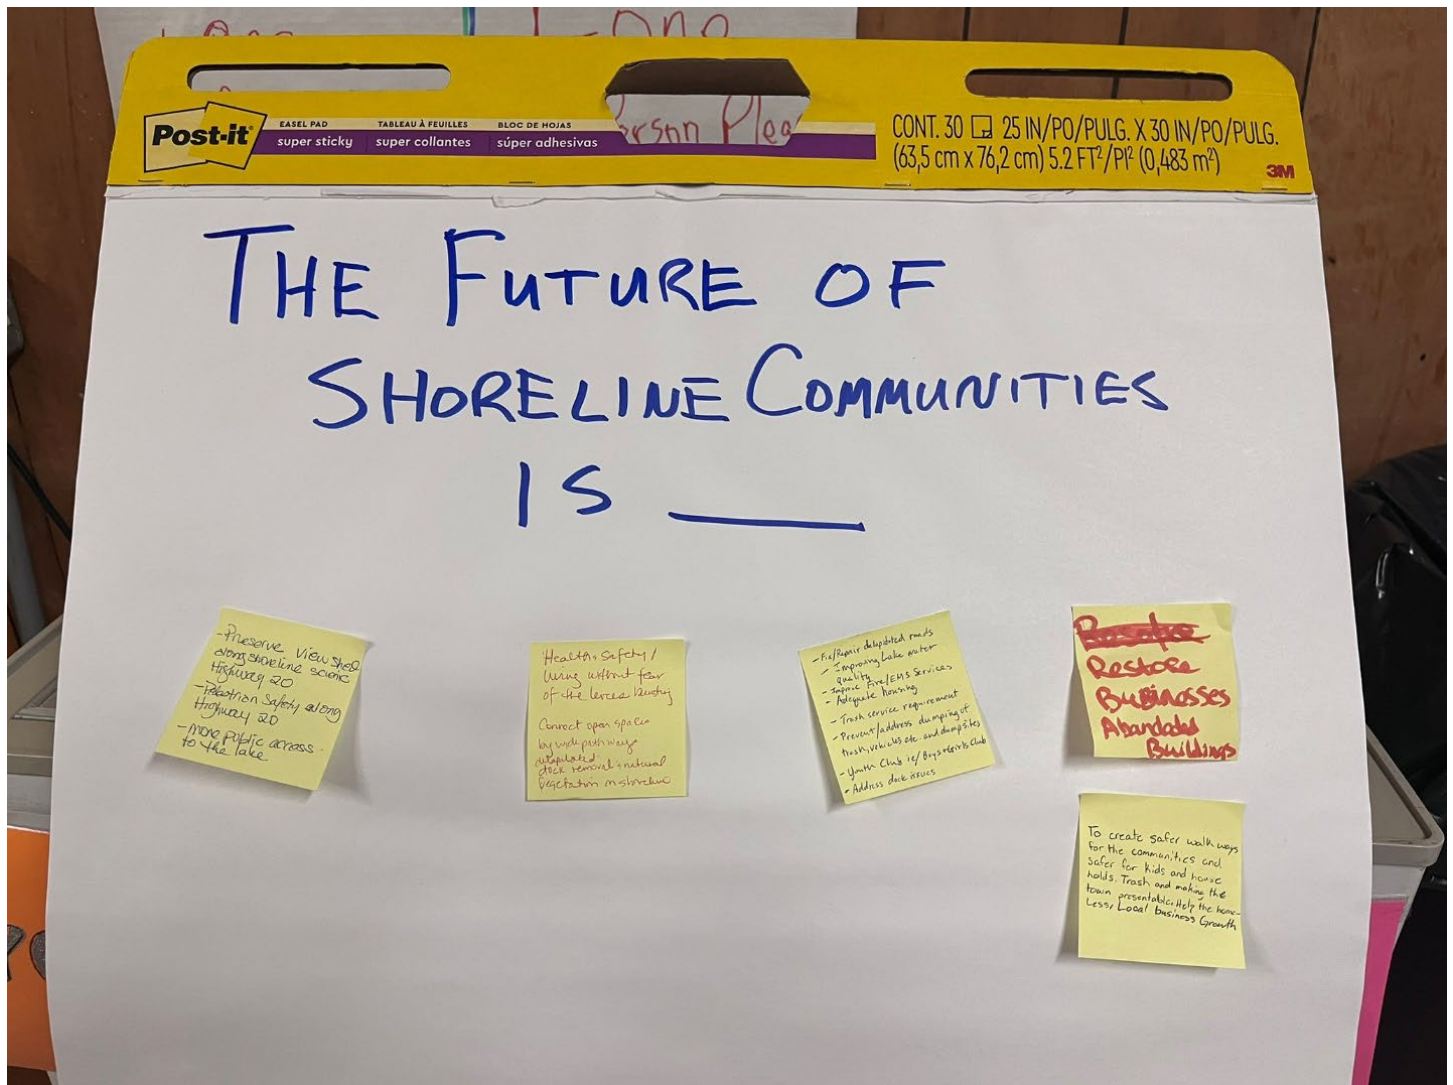 Lone
Person Plea
Post-it
EASEL PAD
super sticky
TABLEAU À FEUILLES
super collantes
BLOC DE HOJAS
súper adhesivas
CONT. 30 25 IN/PO/PULG. X 30 IN/PO/PULG.
(63,5 cm x 76,2 cm) 5.2 FT²/PI² (0,483 m²)
3M
THE FUTURE OF
SHORELINE COMMUNITIES
IS ____
- Preserve View shed
along shoreline scenic
Highway 20
- Pedestrian Safety along
Highway 20
- more public access
to the lake
Health + Safety /
living without fear
of the levees busting
Connect open spaces
by walk pathways
delapidated
dock removal + natural
vegetation in shoreline
- Fix/Repair delapidated roads
- Improving Lake water
quality
- Improve Fire/EMS Services
- Adequate housing
- Trash service requirement
- Prevent/address dumping of
trash, vehicles etc. and dumpsites
- Youth Club ie/ Boys + Girls Club
- Address dock issues
Restore
Businesses
Abandoded
Buildings
To create safer walk ways
for the communities and
safer for kids and house
holds. Trash and making the
town presentable. Help the home-
less, Local business Growth